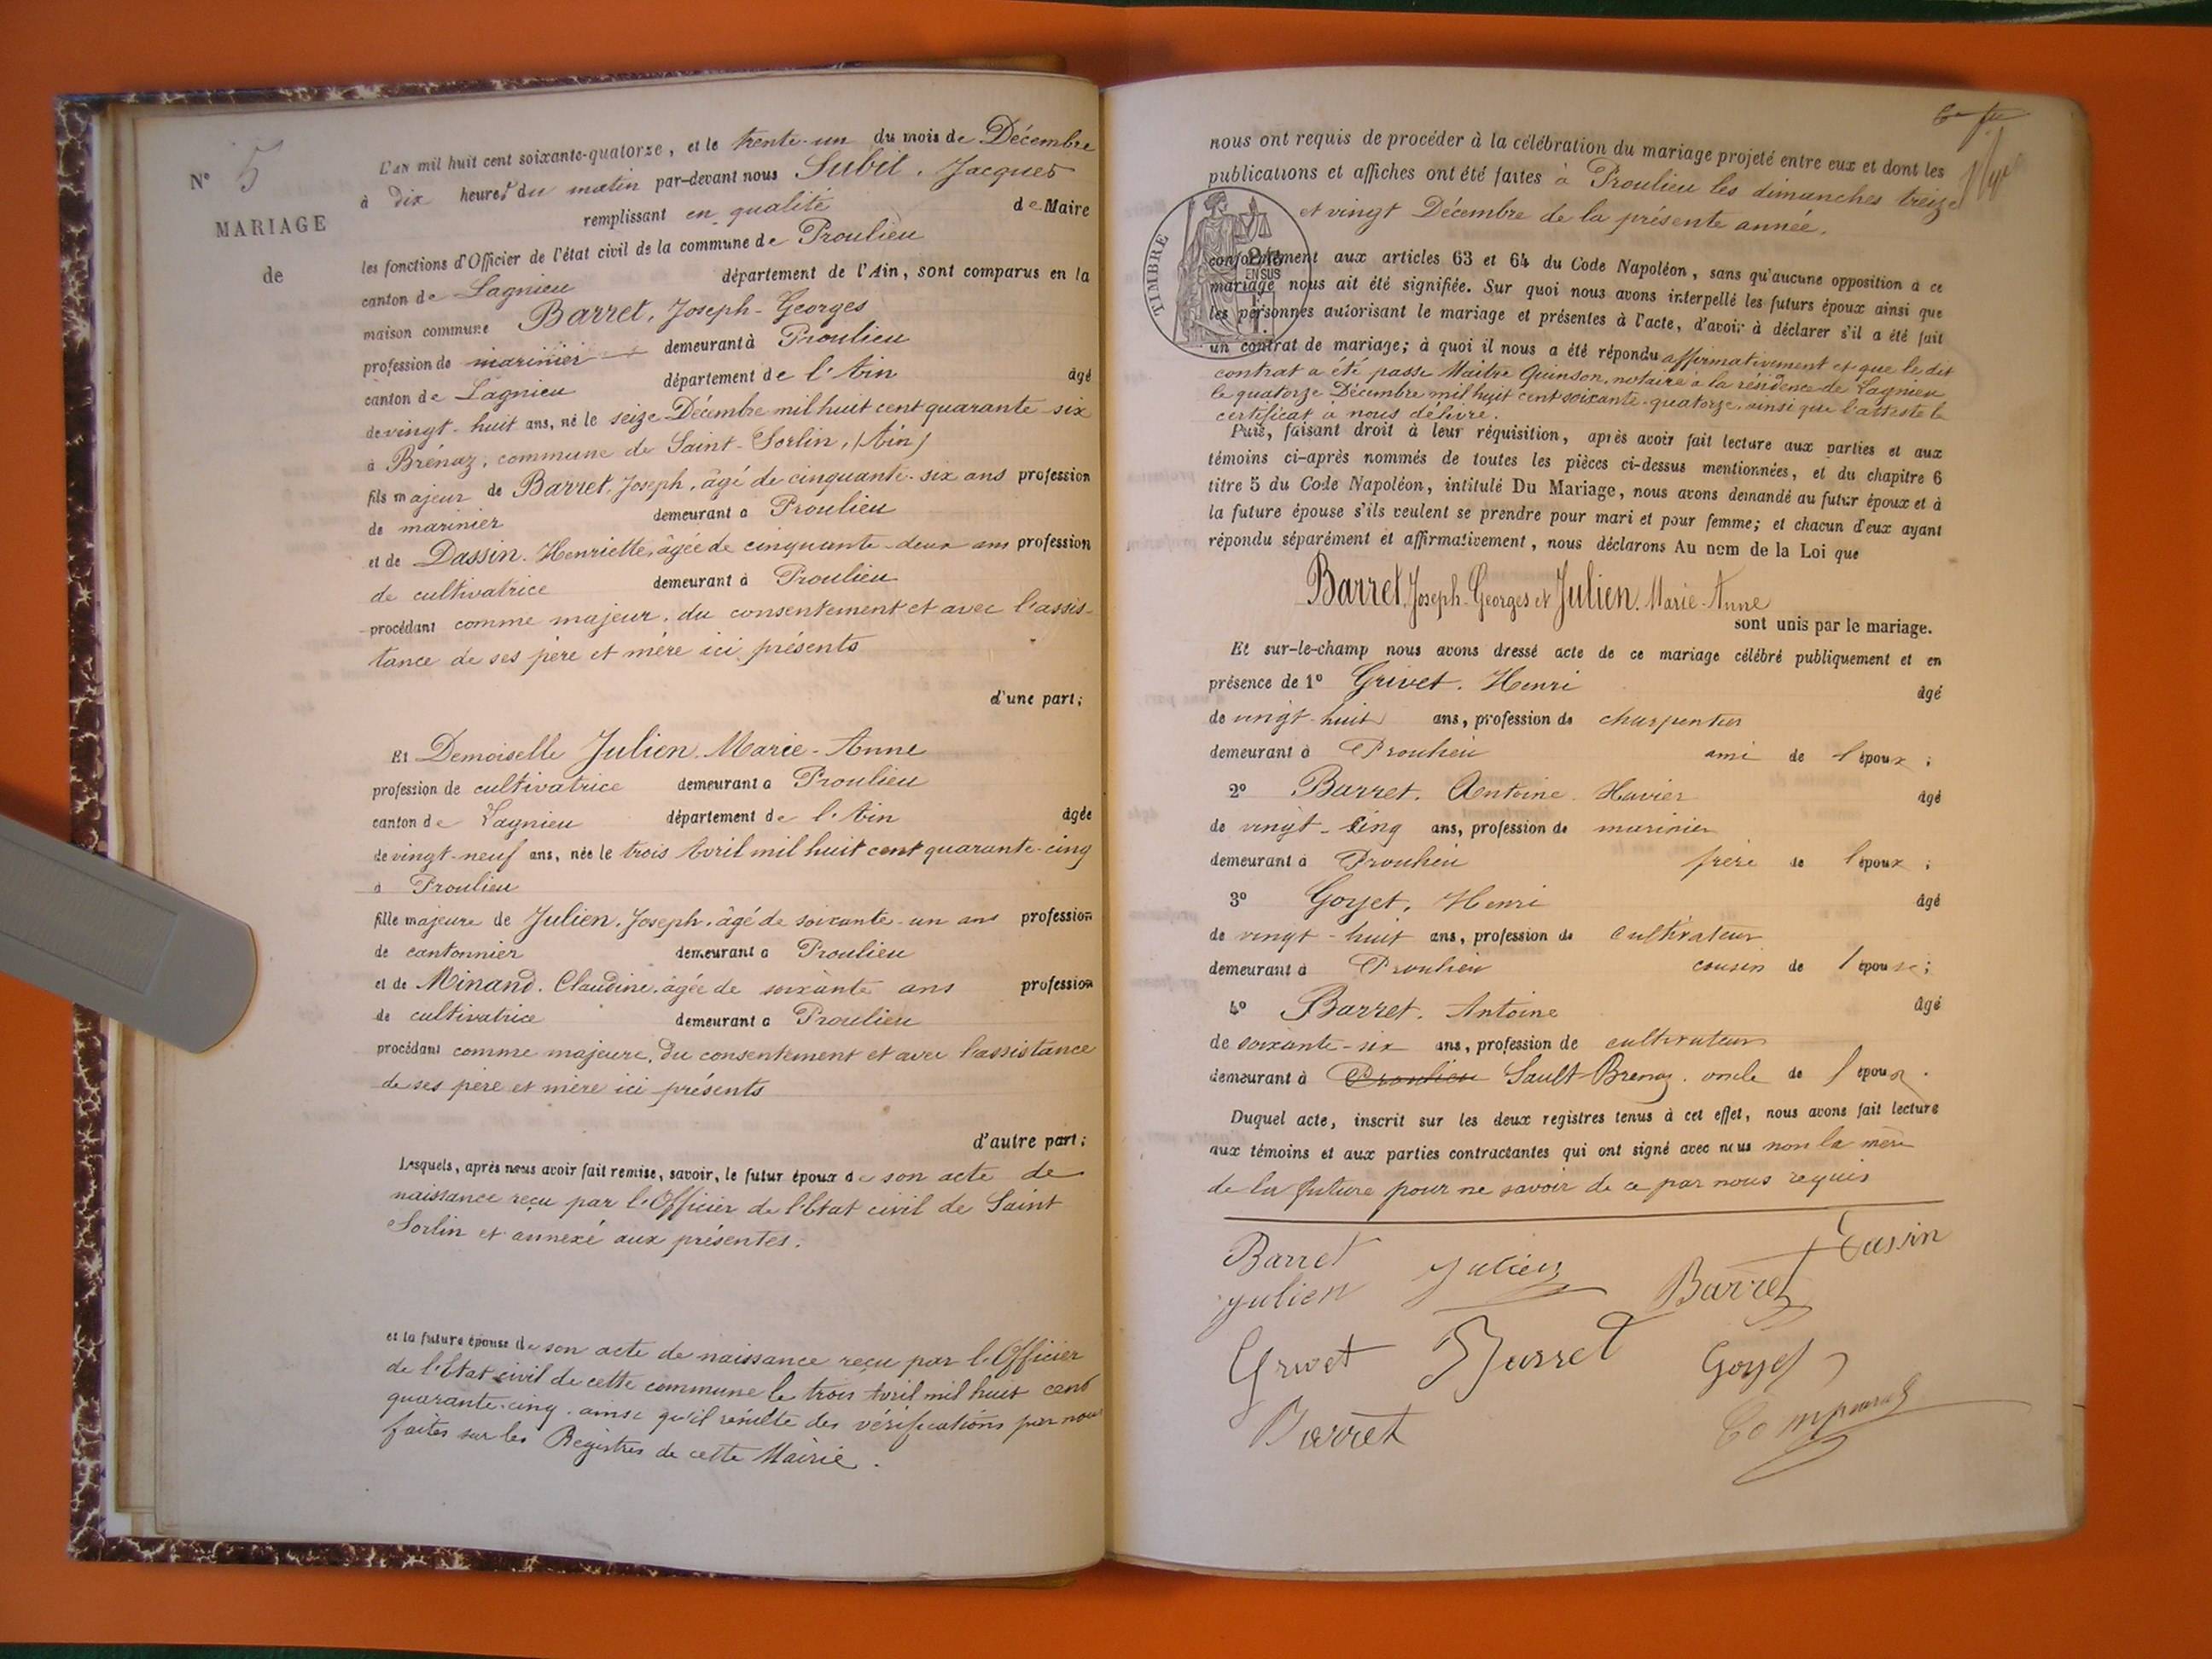 N° 5
MARIAGE
de
L'an mil huit cent soixante-quatorze, et le trente-un du mois de Décembre
à dix heures du matin par-devant nous Subit, Jacques
remplissant en qualité de Maire
les fonctions d'Officier de l'état civil de la commune de Proulieu
canton de Lagnieu département de l'Ain, sont comparus en la
maison commune Barret, Joseph-Georges
profession de marinier demeurant à Proulieu
canton de Lagnieu département de l'Ain âgé
de vingt-huit ans, né le seize Décembre mil huit cent quarante-six
à Brénaz, commune de Saint-Sorlin, (Ain)
fils majeur de Barret, Joseph, âgé de cinquante-six ans profession
de marinier demeurant à Proulieu
et de Dassin, Henriette, âgée de cinquante-deux ans profession
de cultivatrice demeurant à Proulieu
procédant comme majeur, du consentement et avec l'assis-
tance de ses père et mère ici présents
d'une part;
Et Demoiselle Julien, Marie-Anne
profession de cultivatrice demeurant à Proulieu
canton de Lagnieu département de l'Ain âgée
de vingt-neuf ans, née le trois Avril mil huit cent quarante-cinq
à Proulieu
fille majeure de Julien, Joseph, âgé de soixante-un ans profession
de cantonnier demeurant à Proulieu
et de Minand, Claudine, âgée de soixante ans profession
de cultivatrice demeurant à Proulieu
procédant comme majeure, du consentement et avec l'assistance
de ses père et mère ici présents
d'autre part;
Lesquels, après nous avoir fait remise, savoir, le futur époux de son acte de
naissance reçu par l'Officier de l'Etat civil de Saint
Sorlin et annexé aux présentes.
et la future épouse de son acte de naissance reçu par l'Officier
de l'Etat civil de cette commune le trois Avril mil huit cent
quarante-cinq, ainsi qu'il résulte des vérifications par nous
faites sur les Registres de cette Mairie.
nous ont requis de procéder à la célébration du mariage projeté entre eux et dont les
publications et affiches ont été faites à Proulieu les dimanches treize
et vingt Décembre de la présente année.
TIMBRE
EN SUS
conformément aux articles 63 et 64 du Code Napoléon, sans qu'aucune opposition à ce
mariage nous ait été signifiée. Sur quoi nous avons interpellé les futurs époux ainsi que
les personnes autorisant le mariage et présentes à l'acte, d'avoir à déclarer s'il a été fait
un contrat de mariage; à quoi il nous a été répondu affirmativement et que le dit
contrat a été passé Maître Quinson, notaire à la résidence de Lagnieu
le quatorze Décembre mil huit cent soixante-quatorze, ainsi que l'atteste le
certificat à nous délivré.
Puis, faisant droit à leur réquisition, après avoir fait lecture aux parties et aux
témoins ci-après nommés de toutes les pièces ci-dessus mentionnées, et du chapitre 6
titre 5 du Code Napoléon, intitulé Du Mariage, nous avons demandé au futur époux et à
la future épouse s'ils veulent se prendre pour mari et pour femme; et chacun d'eux ayant
répondu séparément et affirmativement, nous déclarons Au nom de la Loi que
Barret, Joseph-Georges et Julien, Marie-Anne
sont unis par le mariage.
Et sur-le-champ nous avons dressé acte de ce mariage célébré publiquement et en
présence de 1° Grivet, Henri âgé
de vingt-huit ans, profession de charpentier
demeurant à Proulieu ami de l'époux;
2° Barret, Antoine-Havier âgé
de vingt-cinq ans, profession de marinier
demeurant à Proulieu frère de l'époux;
3° Goyet, Henri âgé
de vingt-huit ans, profession de cultivateur
demeurant à Proulieu cousin de l'épouse;
4° Barret, Antoine âgé
de soixante-six ans, profession de cultivateur
demeurant à Proulieu Sault-Brenaz, oncle de l'époux.
Duquel acte, inscrit sur les deux registres tenus à cet effet, nous avons fait lecture
aux témoins et aux parties contractantes qui ont signé avec nous non la mère
de la future pour ne savoir de ce par nous requis
Barret Julien Barret Dassin
Julien
Grivet Barret Goyet
Barret